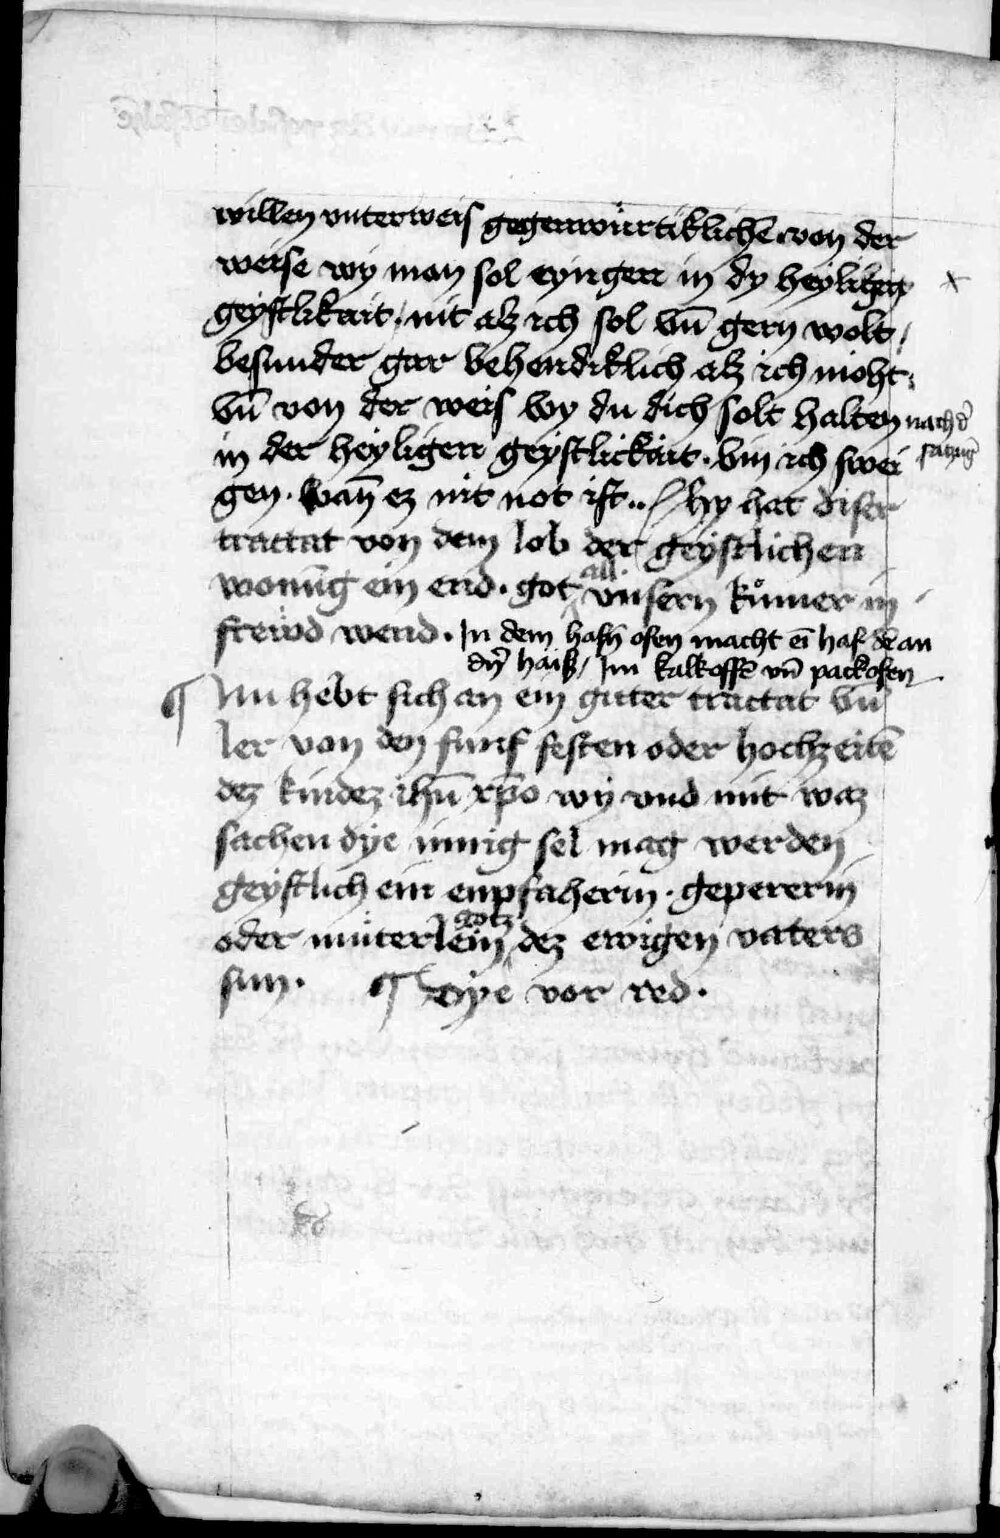 willen vnterweis gegenwürtiklichē von der
weise wy man sol eyngen in dy heyligen
geystlikait, nit alz ich sol vn̄ gern wolt,
besunder gar behendiklich alz ich moht.
vn̄ von der weis wy du dich solt halten nach d̾
in der heyligen geystlickait. bin ich swei
gen. wan̄ ez nit not ist.. Hy hat diser
tractat von dem lob der geystlichen
wonūg ein end. got all vnsern kumer in
frewd wend. In dem hafn̄ ofen macht eī haf dē an
dn̄ haiß, Im kalkoffē vn̄ packofen
¶ Nu hebt sich an ein guter tractat vn̄
ler von den funf festen oder hochzeitē
dez kindez ihū xp̄o wy vnd mit waz
sachen dye innig sel mag werden
geystlich ein enpfaherin. gepererin
oder müterlein gotz dez ewigen vaters
sun. ¶ Dye vor red.